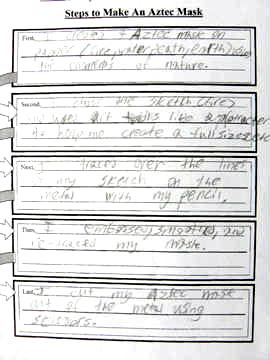 Steps to Make An Aztec Mask
First, I Aztec mask on
paper (fire, water, death, earth)
the elements of nature.
Second, I the sketch (fire)
my like a
to help me create a full size
Next, I traced over the lines
of my sketch on the
metal with my pencil.
Then, I embossed, smoothed, and
re-traced my mask.
Last, I cut my Aztec mask
out of the metal using
scissors.